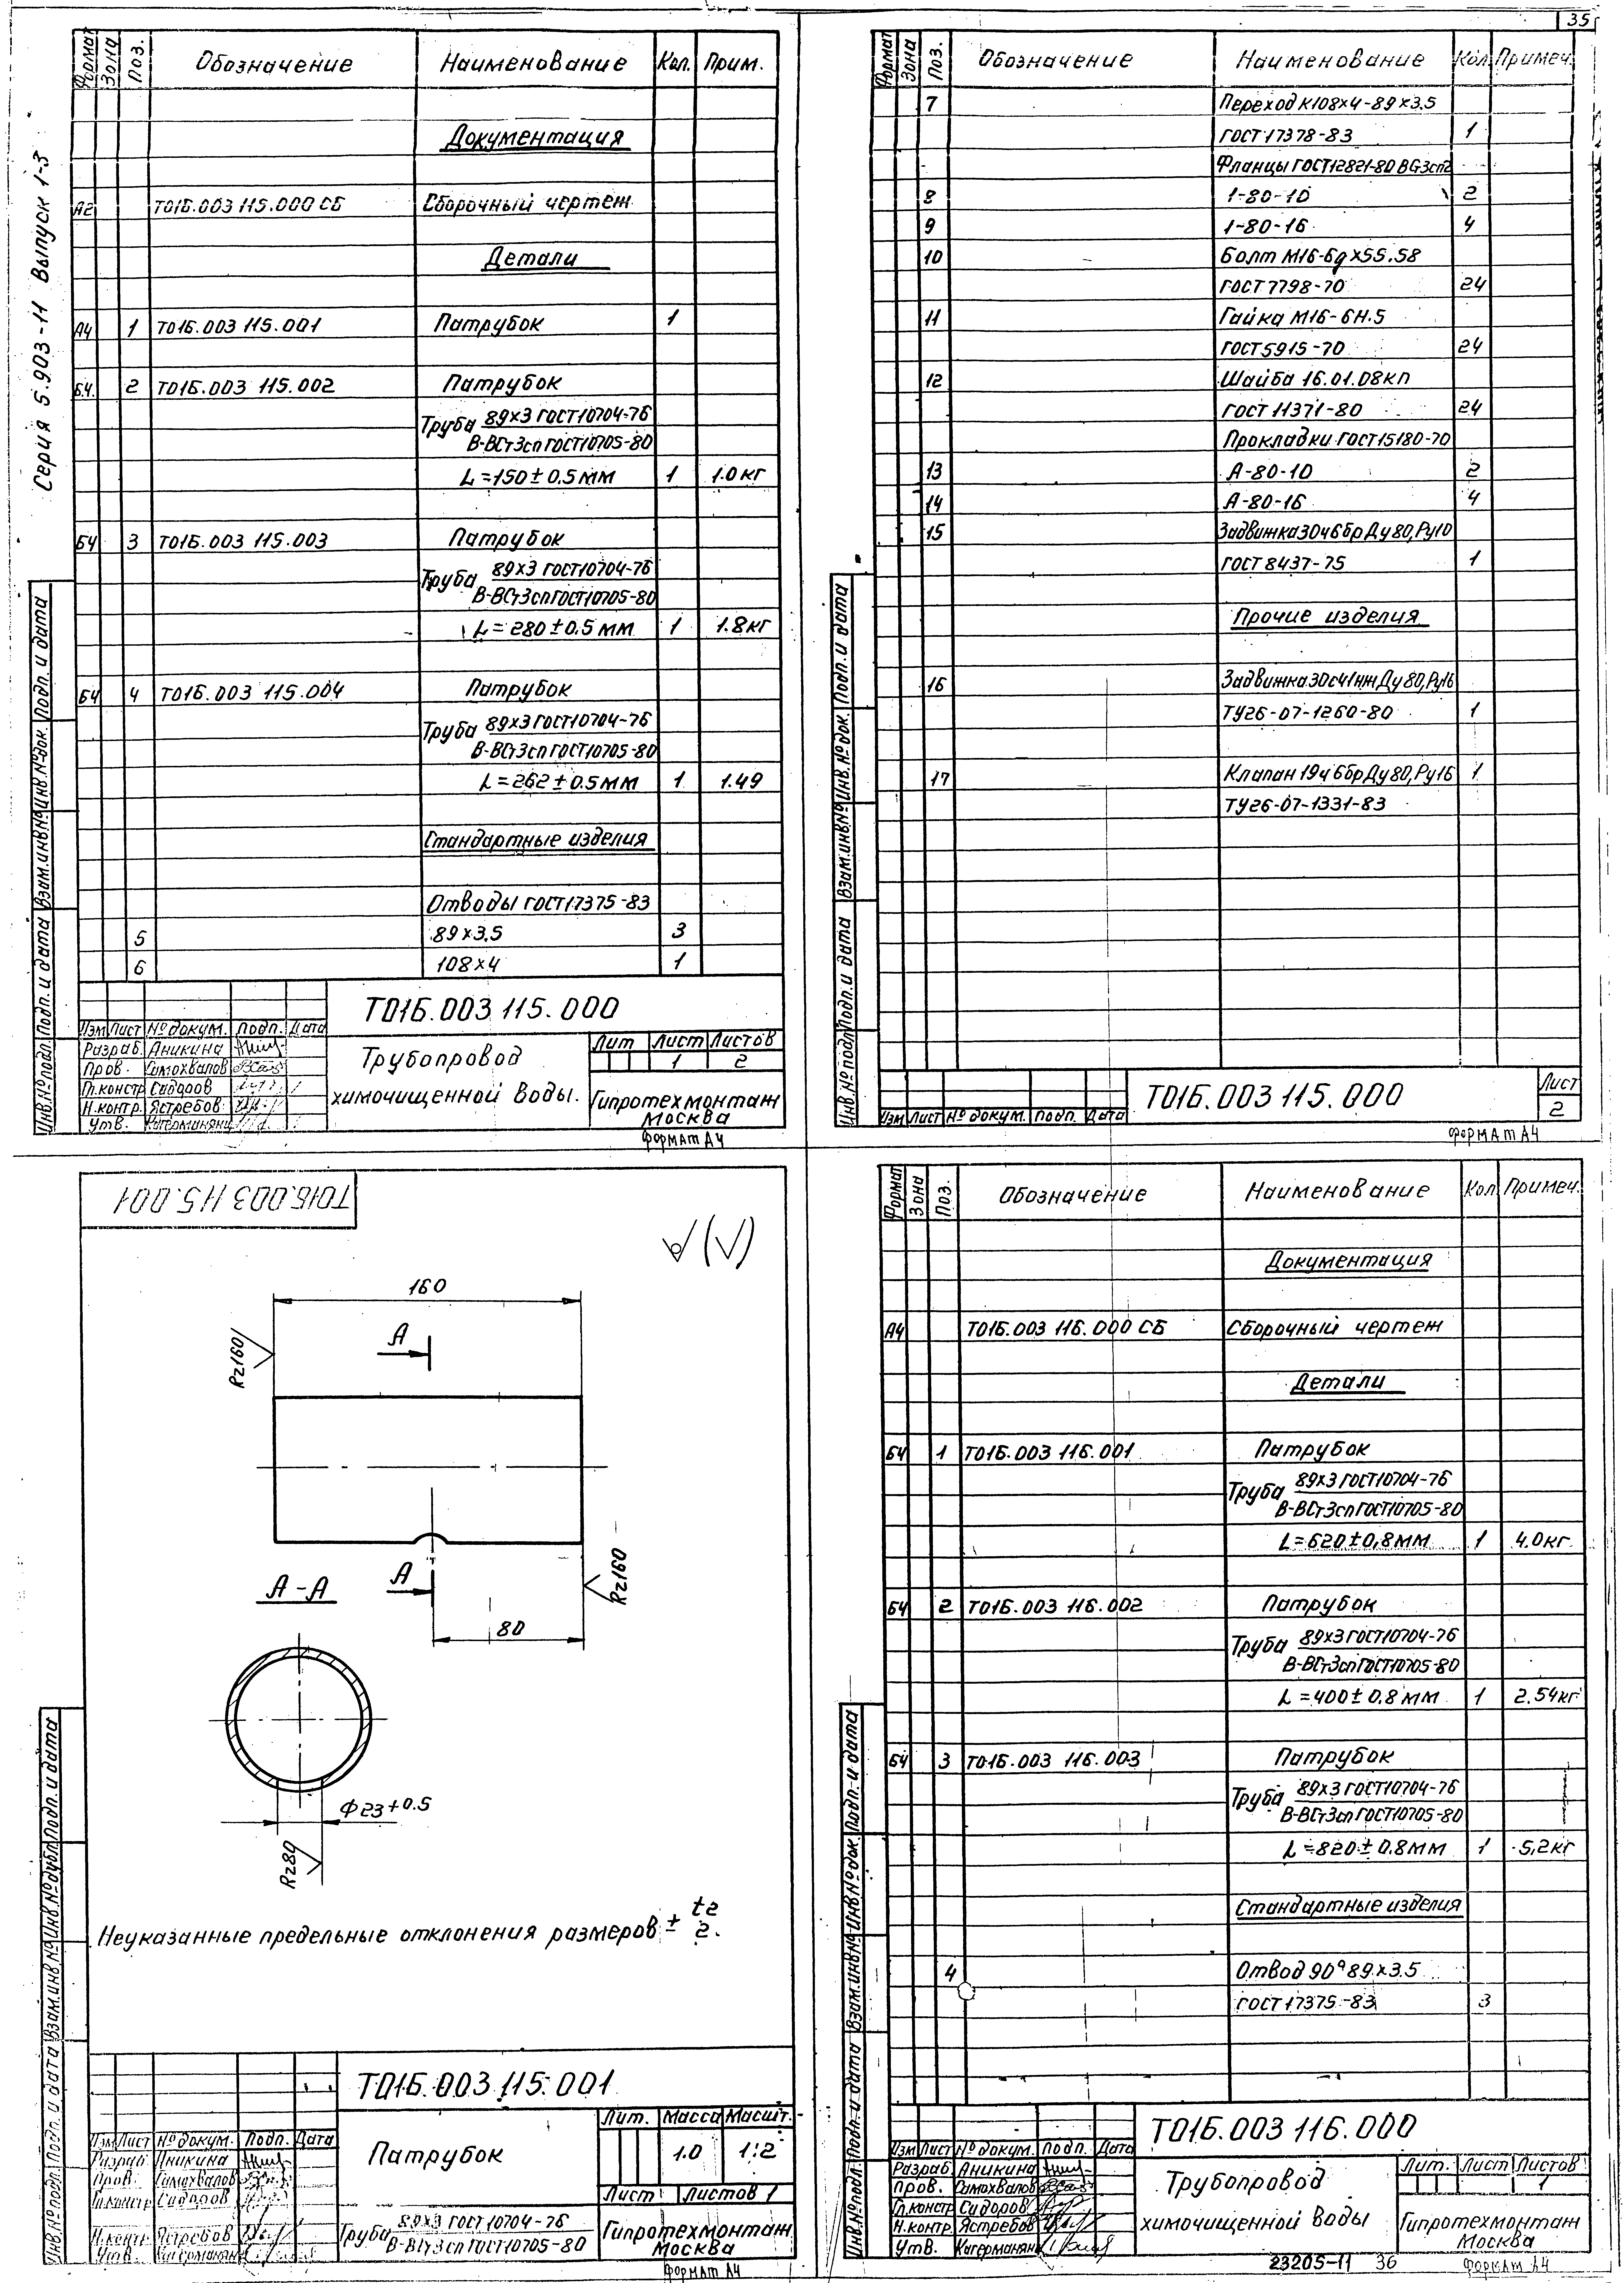 35
Серия 5.903-11 Выпуск 1-3
Формат Зона Поз. Обозначение Наименование Кол. Прим.
Документация
А2 Т01Б.003 115.000 СБ Сборочный чертеж
Детали
А4 1 Т01Б.003 115.001 Патрубок 1
Б4 2 Т01Б.003 115.002 Патрубок
Труба 89×3 ГОСТ10704-76
В-ВСт3сп ГОСТ10705-80
L=150±0.5мм 1 1.0кг
Б4 3 Т01Б.003 115.003 Патрубок
Труба 89×3 ГОСТ10704-76
В-ВСт3сп ГОСТ10705-80
L=280±0.5мм 1 1.8кг
Б4 4 Т01Б.003 115.004 Патрубок
Труба 89×3 ГОСТ10704-76
В-ВСт3сп ГОСТ10705-80
L=262±0.5мм 1 1.49
Стандартные изделия
Отводы ГОСТ17375-83
5 89×3.5 3
6 108×4 1
Т01Б.003 115.000
Изм Лист № докум. Подп. Дата
Разраб. Аникина
Пров. Самохвалов
Гл.констр Сидоров
Н.контр. Ястребов
Утв.
Трубопровод
химочищенной воды.
Лит Лист Листов
1 2
Гипротехмонтаж
Москва
Формат А4
Инв.№ подл. Подп. и дата Взам.инв.№ Инв.№ док. Подп. и дата
Формат Зона Поз. Обозначение Наименование Кол Примеч.
7 Переход К108×4-89×3.5
ГОСТ 17378-83 1
Фланцы ГОСТ12821-80 ВСт3сп2
8 1-80-10 2
9 1-80-16 4
10 Болт М16-6g×55.58
ГОСТ 7798-70 24
11 Гайка М16-6Н.5
ГОСТ5915-70 24
12 Шайба 16.01.08кп
ГОСТ 11371-80 24
Прокладки ГОСТ15180-70
13 А-80-10 2
14 А-80-16 4
15 Задвижка30ч6бр Ду80,Ру10
ГОСТ 8437-75 1
Прочие изделия
16 Задвижка30с41нж Ду80,Ру16
ТУ26-07-1260-80 1
17 Клапан 19ч6бр Ду80,Ру16 1
ТУ26-07-1331-83
Изм Лист № докум. Подп. Дата
Т01Б.003 115.000
Лист
2
Формат А4
Инв.№ подл Подп. и дата Взам.инв.№ Инв.№ док. Подп. и дата
Т01Б.003 115.001
160
Rz160
А
А
Rz160
А-А
80
Ф23+0.5
Rz80
Неуказанные предельные отклонения размеров ± t2
2.
Т01Б.003 115.001
Изм Лист № докум. Подп. Дата
Разраб Аникина
Пров. Самохвалов
Гл.констр Сидоров
Н.контр Ястребов
Утв.
Патрубок
Лит. Масса Масшт.
1.0 1:2
Лист Листов 1
Труба 89×3 ГОСТ 10704-76
В-ВСт3сп ГОСТ10705-80
Гипротехмонтаж
Москва
Формат А4
Инв.№ подл. Подп. и дата Взам.инв.№ Инв.№ дубл. Подп. и дата
Формат Зона Поз. Обозначение Наименование Кол Примеч.
Документация
А4 Т01Б.003 116.000 СБ Сборочный чертеж
Детали
Б4 1 Т01Б.003 116.001 Патрубок
Труба 89×3 ГОСТ10704-76
В-ВСт3сп ГОСТ10705-80
L=620±0,8мм 1 4.0кг
Б4 2 Т01Б.003 116.002 Патрубок
Труба 89×3 ГОСТ10704-76
В-ВСт3сп ГОСТ10705-80
L=400±0.8мм 1 2.54кг
Б4 3 Т01Б.003 116.003 Патрубок
Труба 89×3 ГОСТ10704-76
В-ВСт3сп ГОСТ10705-80
L=820±0.8мм 1 5,2кг
Стандартные изделия
4 Отвод 90° 89×3.5
ГОСТ17375-83 3
Т01Б.003 116.000
Изм Лист № докум. Подп. Дата
Разраб Аникина
Пров. Самохвалов
Гл.констр Сидоров
Н.контр. Ястребов
Утв.
Трубопровод
химочищенной воды
Лит. Лист Листов
1
Гипротехмонтаж
Москва
23205-11 36
Формат А4
Инв.№ подл. Подп. и дата Взам.инв.№ Инв.№ док. Подп. и дата